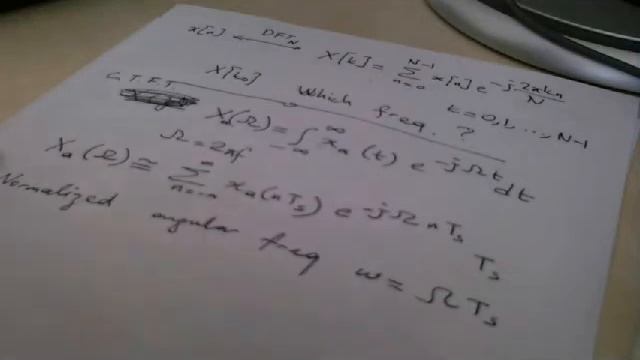 x[n] ⟷ DFT_N X[k] = Σ_{n=0}^{N-1} x[n] e^{-j 2πkn/N}
k = 0, 1, ..., N-1
X[k₀] Which freq. ?
C.T.F.T
X_a(Ω) = ∫_{-∞}^{∞} x_a(t) e^{-jΩt} dt
Ω = 2πf
X_a(Ω) ≅ Σ_{n=-∞}^{∞} x_a(nT_s) e^{-jΩnT_s} T_s
Normalized angular freq ω = ΩT_s